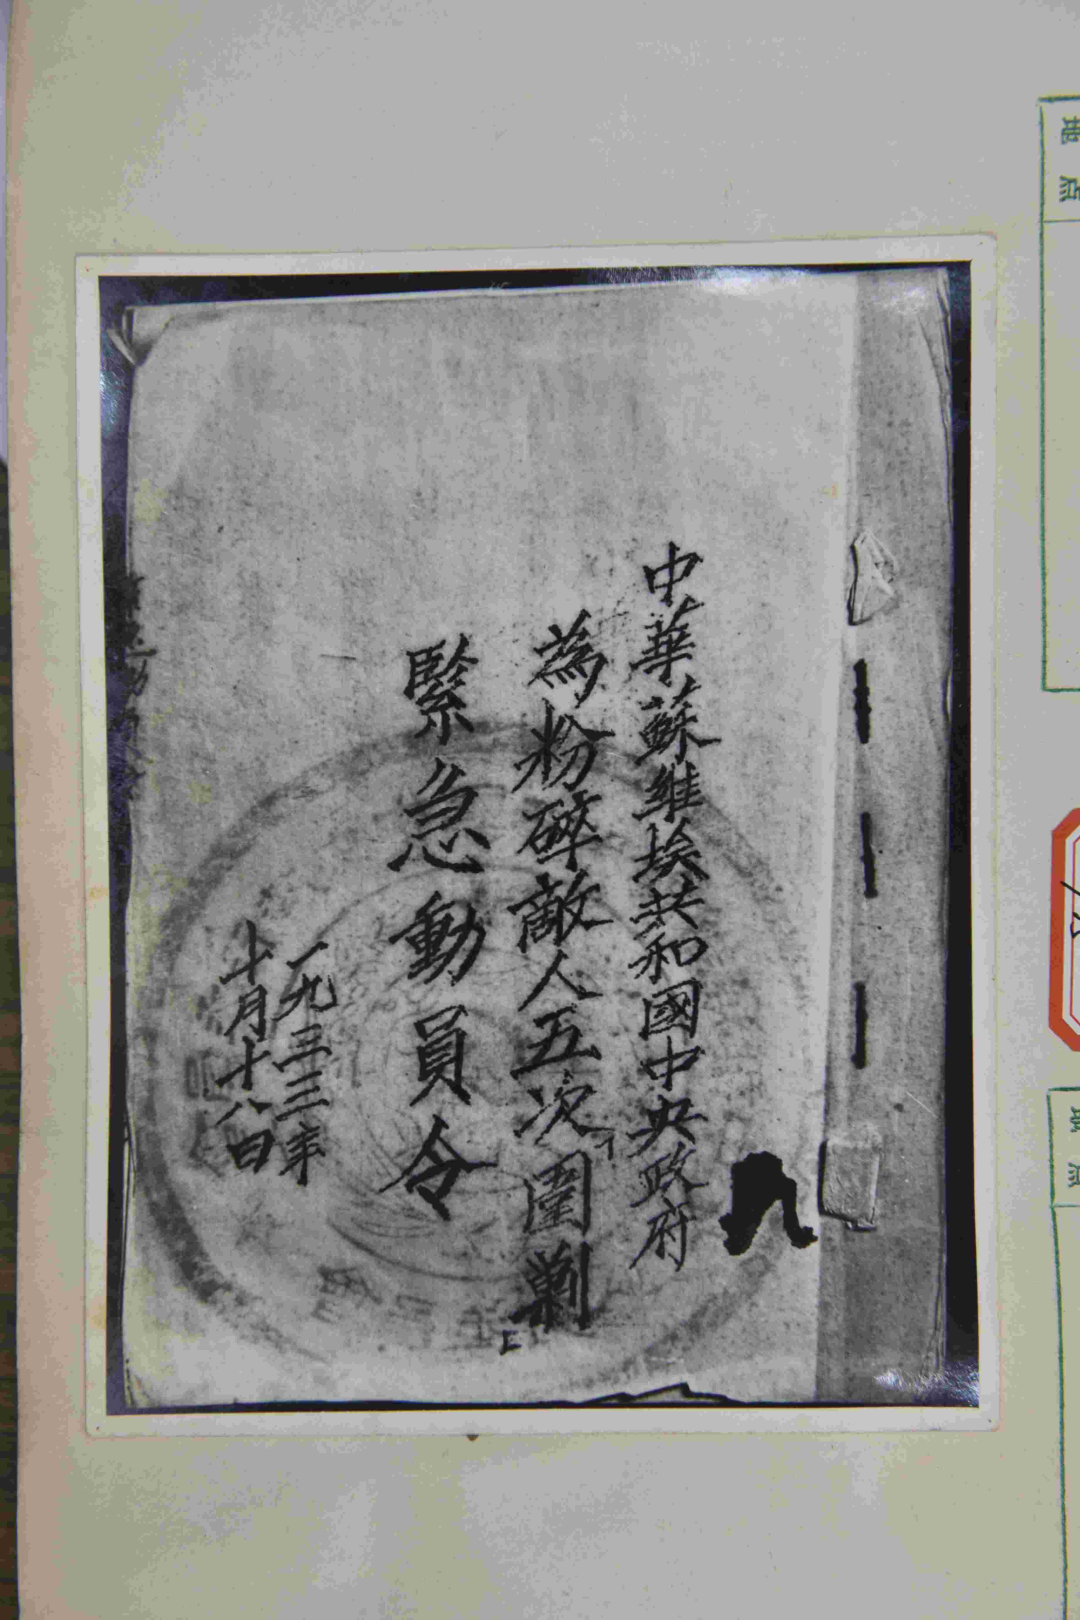 中華蘇維埃共和國中央政府
為粉碎敵人五次「圍剿」
緊急動員令
一九三三年
十月十八日
地点